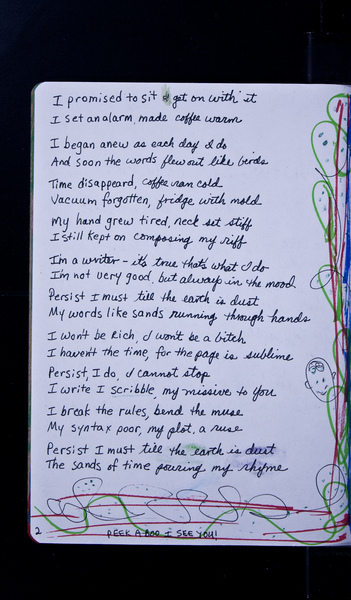 I promised to sit & get on with it
I set an alarm, made coffee warm
I began anew as each day I do
And soon the words flew out like birds
Time disappeared, coffee ran cold
Vacuum forgotten, fridge with mold
My hand grew tired, neck set stiff
I still kept on composing my riff
I'm a writer - it's true that's what I do
I'm not very good, but always in the mood
Persist I must till the earth is dust
My words like sands running through hands
I won't be rich, I won't be a bitch
I haven't the time, for the page is sublime
Persist, I do, I cannot stop
I write I scribble, my missive to you
I break the rules, bend the muse
My syntax poor, my plot, a ruse
Persist I must till the earth is dust
The sands of time pouring my rhyme
2 PEEK A BOO I SEE YOU!